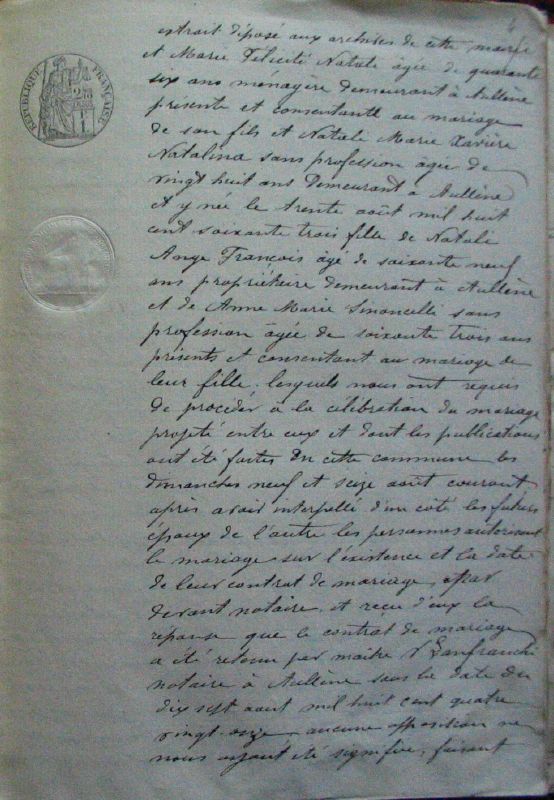 4
extrait déposé aux archives de cette mairie
et Marie Félicité Natali âgée de quarante
six ans ménagère demeurant à Aullène
présente et consentante au mariage
de son fils et Natali Marie Xavière
Natalina sans profession âgée de
vingt huit ans Demeurant à Aullène
et y née le trente août mil huit
cent soixante trois fille de Natali
Ange François âgé de soixante neuf
ans propriétaire demeurant à Aullène
et de Anne Marie Simoncelle sans
profession âgée de soixante trois ans
présents et consentant au mariage de
leur fille. lesquels nous ont requis
de procéder à la célébration du mariage
projeté entre eux et dont les publications
ont été faites en cette commune les
dimanches neuf et seize août courant
après avoir interpellé d'un coté les futurs
époux de l'autre les personnes autorisant
le mariage sur l'existence et la date
de leur contrat de mariage, par
devant notaire, et reçu d'eux la
réponse que le contrat de mariage
a été retenu par maître Lanfranchi
notaire à Aullène sous la date du
dix sept aout mil huit cent quatre
vingt-onze aucune opposition ne
nous ayant été signifiée, faisant
RÉPUBLIQUE FRANÇAISE